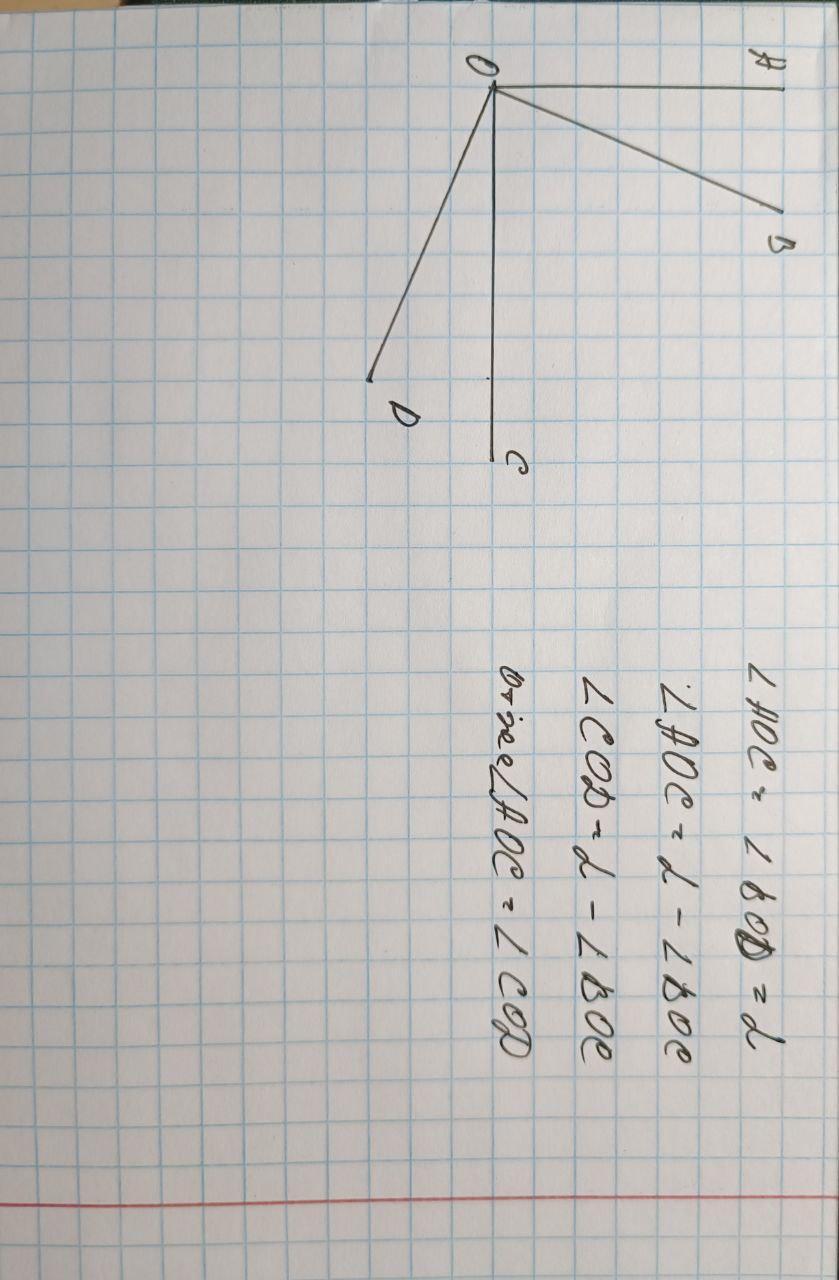 A
B
O
C
D
∠AOC = ∠BOD = α
∠AOC = α - ∠BOC
∠COD = α - ∠BOC
отже ∠AOC = ∠COD